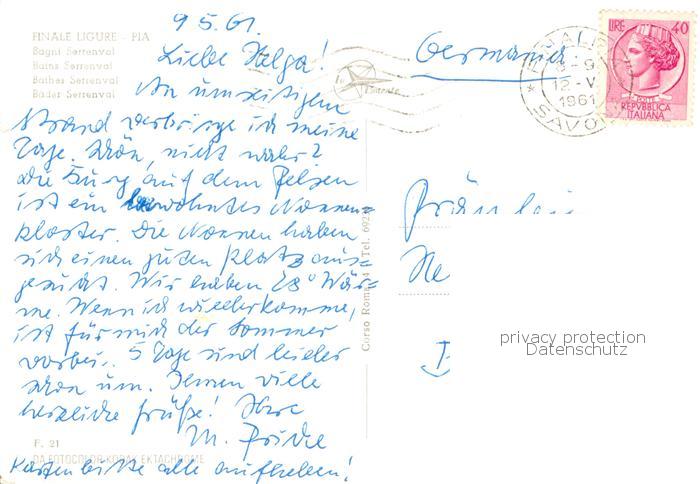 9 5. 61.
FINALE LIGURE - PIA
Bagni Serrenval
Bains Serrenval
Bathes Serrenval
Bäder Serrenval
Liebe Helga!
An umseitigem
Strand verbringe ich meine
Tage. Schön, nicht wahr?
Die Burg auf dem Felsen
ist ein bewohntes Nonnen=
kloster. Die Nonnen haben
sich einen guten Platz aus=
gesucht. Wir haben 28° Wär=
me. Wenn ich wiederkomme,
ist für mich der Sommer
vorbei. 5 Tage sind leider
schon um. Ihnen viele
herzliche Grüße! Ihre
M.
Karten bitte alle aufheben!
F. 21
DA FOTOCOLOR KODAK EKTACHROME
Corso Roma
Tel.
Germania
LIRE 40
POSTE
REPVBBLICA
ITALIANA
12-V
1961
SAVO
Fräulein
He
privacy protection
Datenschutz